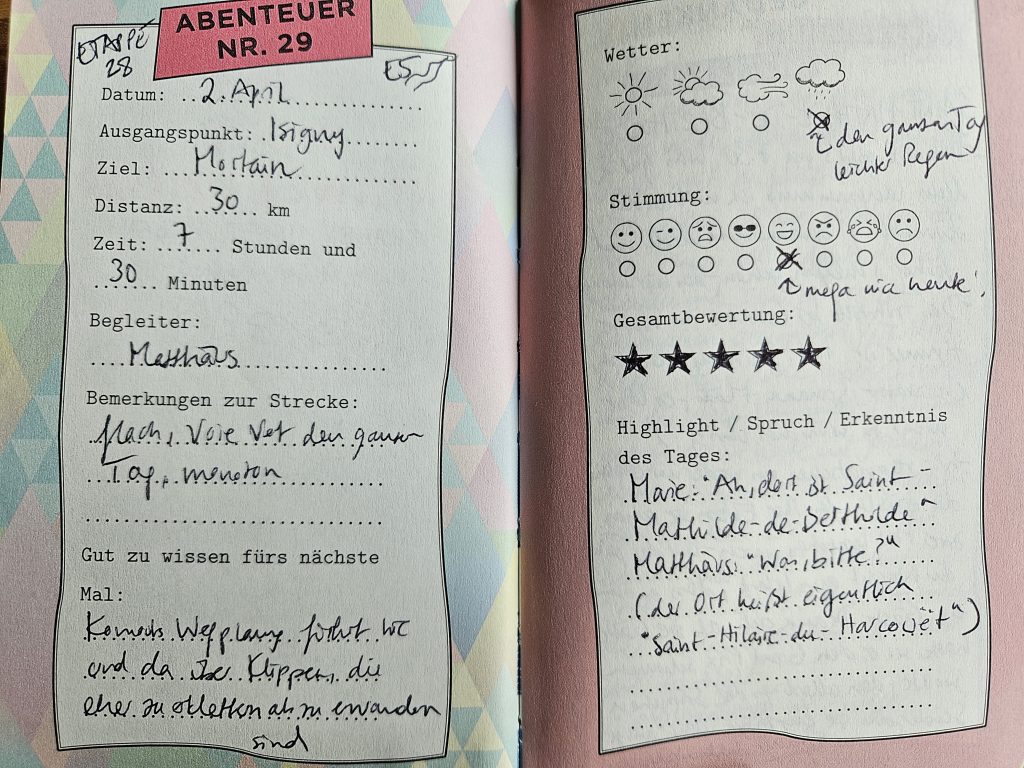 ABENTEUER
NR. 29
ETAPPE
28
Datum: 2. April
Ausgangspunkt: Isigny
Ziel: Mortain
Distanz: 30 km
Zeit: 7 Stunden und
30 Minuten
Begleiter:
Matthäus
Bemerkungen zur Strecke:
flach, Voie Vet den ganzen
Tag, monoton
Gut zu wissen fürs nächste
Mal:
Komoots Wegplanung führt
und da über Klippen, die
eher zu klettern als zu erwandern
sind
Wetter:
den ganzen Tag
leichter Regen
Stimmung:
mega nice heute!
Gesamtbewertung:
Highlight / Spruch / Erkenntnis
des Tages:
Marie: "Ah, dort ist Saint-
Mathilde-de-Berthilde"
Matthäus: "Was, bitte?"
(der Ort heißt eigentlich
"Saint-Hilaire-du-Harcouët")